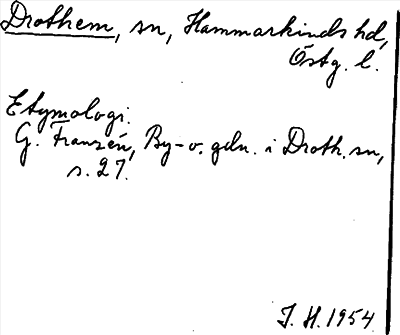 Drothem, sn, Hammarkinds hd,
Östg. l.
Etymologi.
G. Franzén, By- o. gdn. i Droth. sn,
s. 27.
J. H. 1954